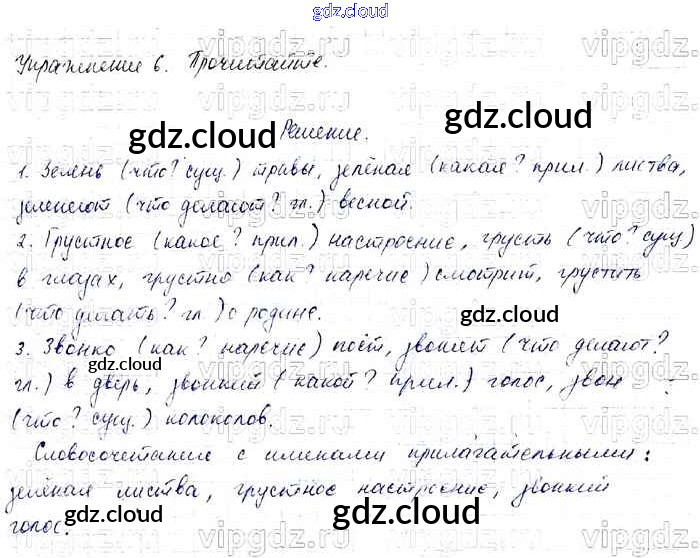 gdz.cloud
Упражнение 6. Прочитайте.
Решение.
1. Зелень (что? сущ.) травы, зелёная (какая? прил.) листва,
зеленеют (что делают? гл.) весной.
2. Грустное (какое? прил.) настроение, грусть (что? сущ)
в глазах, грустно (как? наречие) смотрит, грустить
(что делать? гл) о родине.
3. Звонко (как? наречие) поёт, звонят (что делают?
гл.) в дверь, звонкий (какой? прил.) голос, звон
(что? сущ.) колоколов.
Словосочетание с именами прилагательными:
зелёная листва, грустное настроение, звонкий
голос.
gdz.cloud
gdz.cloud
gdz.cloud
gdz.cloud
gdz.cloud
gdz.cloud
vipgdz.ru